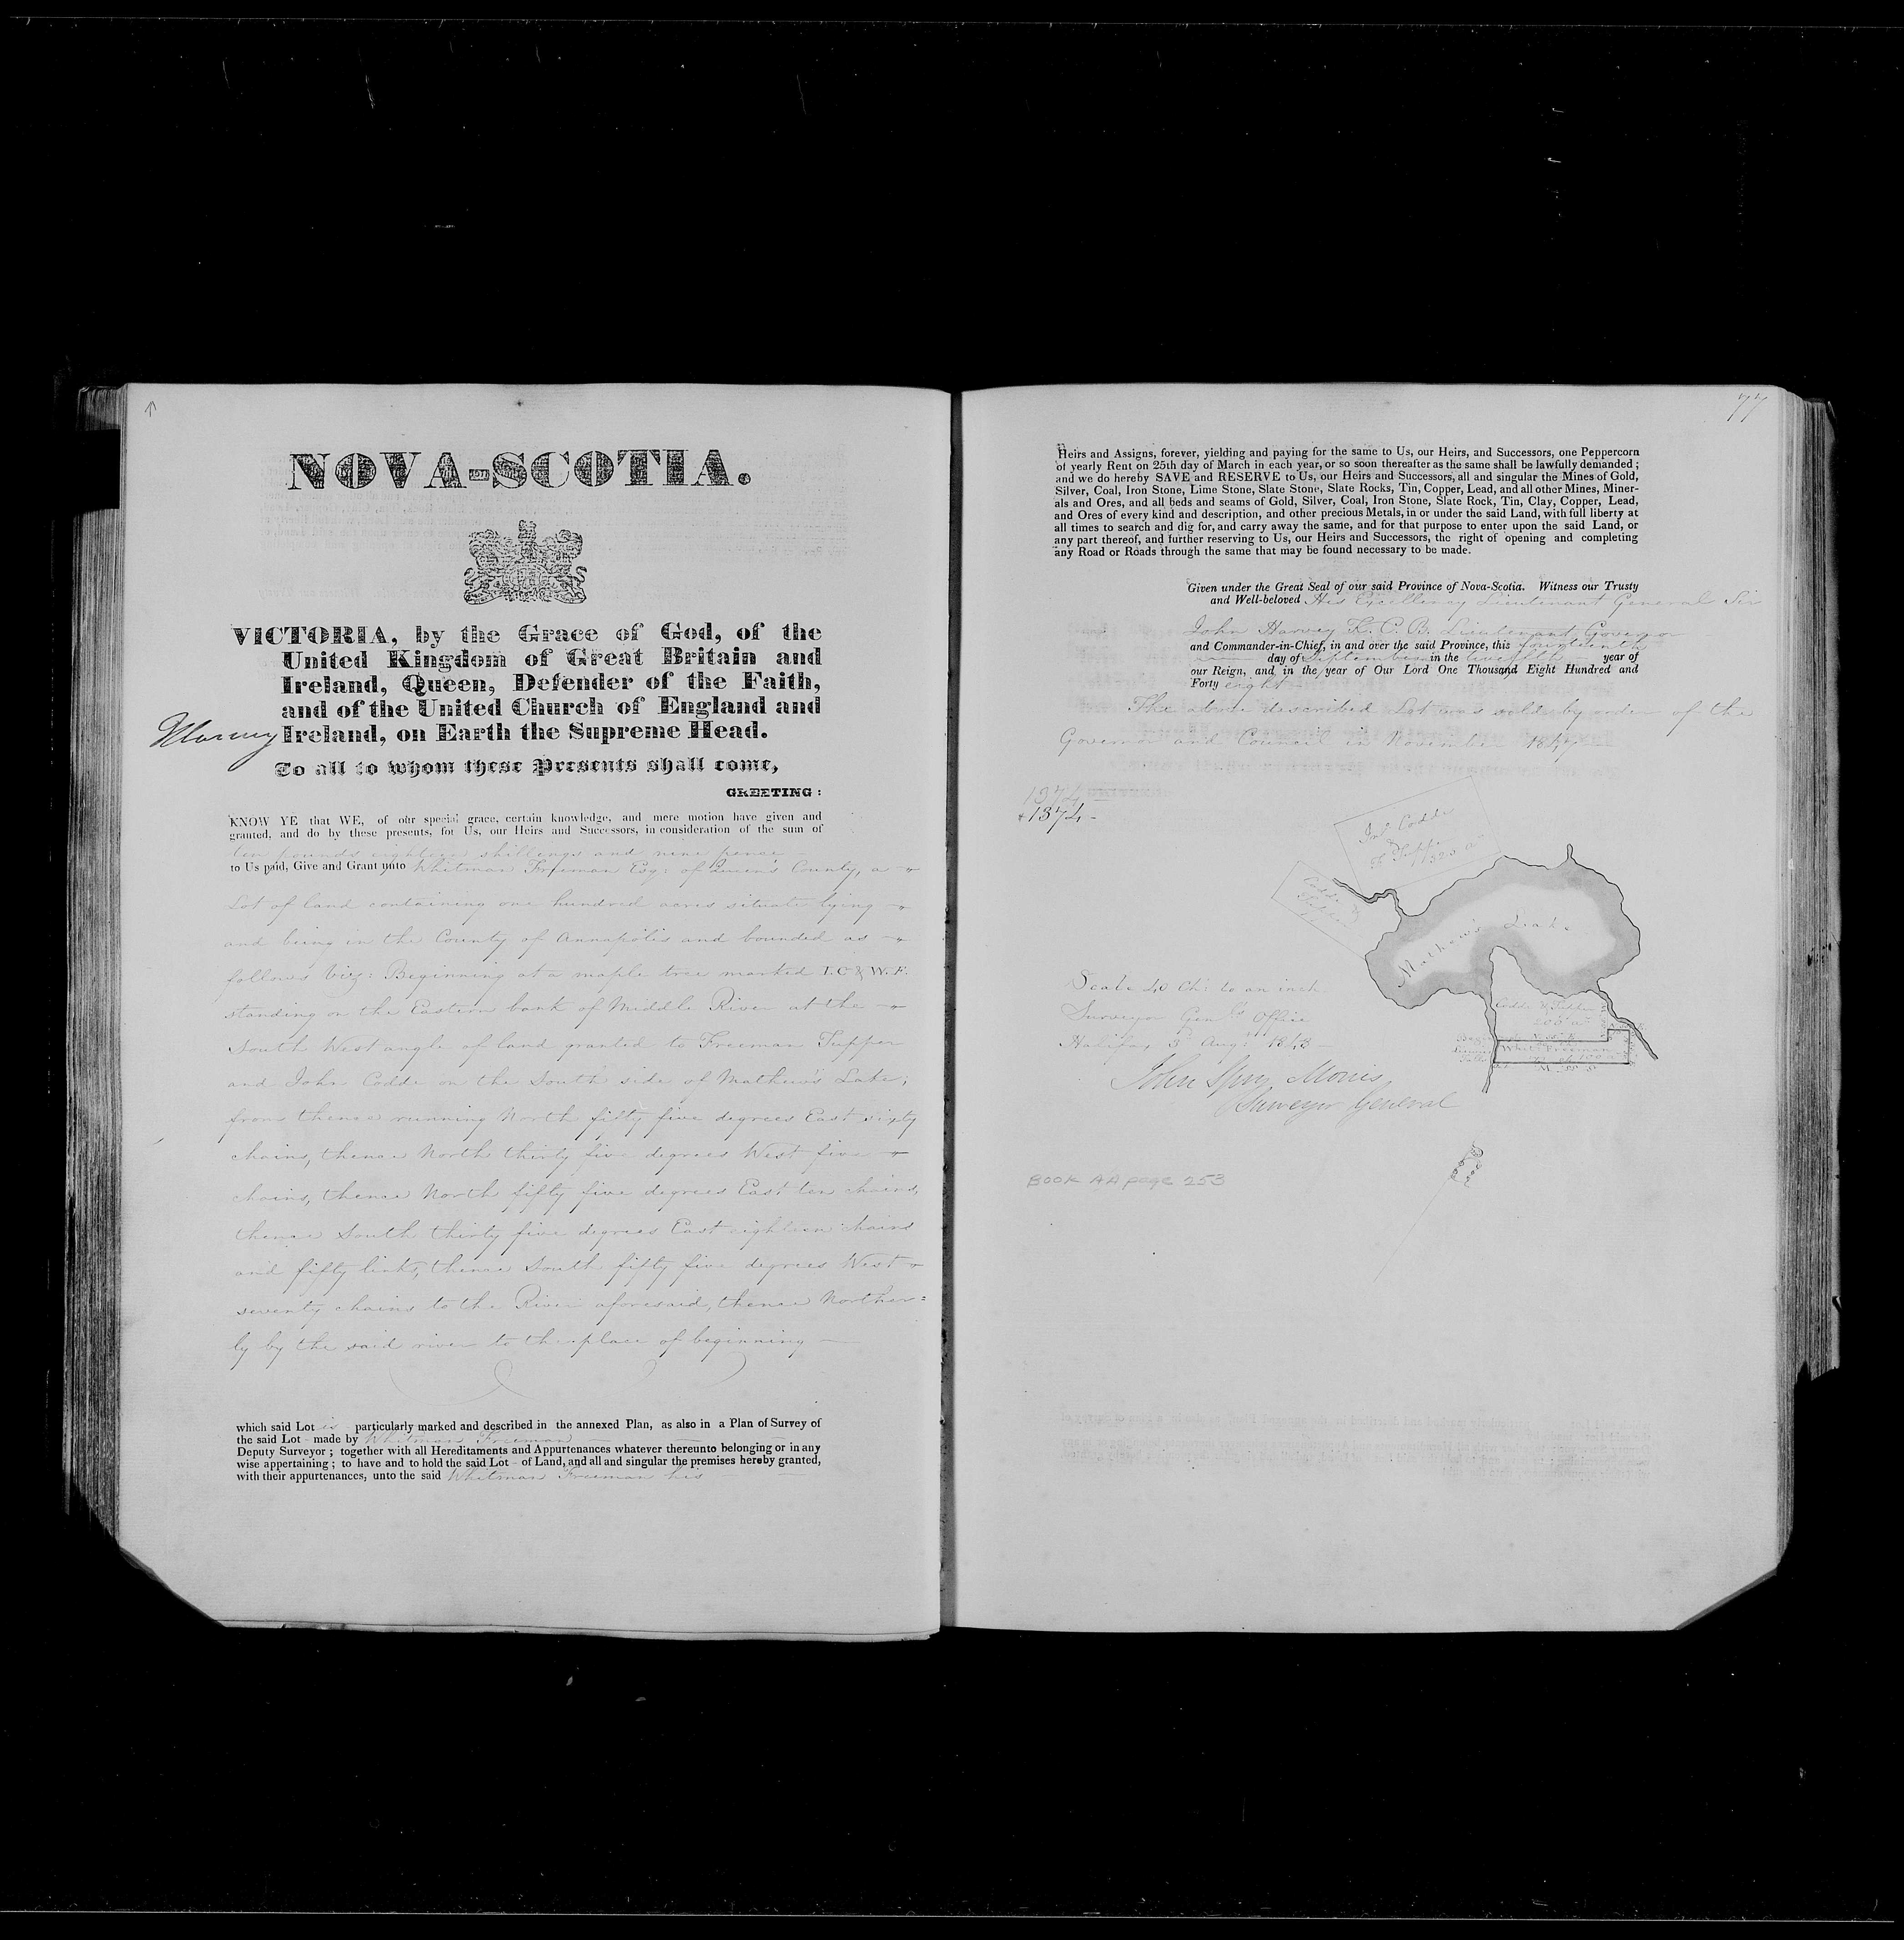 NOVA-SCOTIA.
VICTORIA, by the Grace of God, of the
United Kingdom of Great Britain and
Ireland, Queen, Defender of the Faith,
and of the United Church of England and
Ireland, on Earth the Supreme Head.
To all to whom these Presents shall come,
GREETING:
KNOW YE that WE, of our special grace, certain knowledge, and mere motion have given and
granted, and do by these presents, for Us, our Heirs and Successors, in consideration of the sum of
ten pounds eighteen shillings and nine pence
to Us paid, Give and Grant unto Whitman Freeman Esq: of Queen's County, a
Lot of land containing one hundred acres situate lying
and being in the County of Annapolis and bounded as
follows Viz: Beginning at a maple tree marked I.C & W.F.
standing on the Eastern bank of Middle River at the
South West angle of land granted to Freeman Tupper
and John Codde on the South side of Mathew's Lake;
from thence running North fifty five degrees East sixty
chains, thence North thirty five degrees West five
chains, thence North fifty five degrees East ten chains,
thence South thirty five degrees East eighteen chains
and fifty links, thence South fifty five degrees West
seventy chains to the River aforesaid, thence Norther=
ly by the said river to the place of beginning
which said Lot is particularly marked and described in the annexed Plan, as also in a Plan of Survey of
the said Lot - made by Whitman Freeman
Deputy Surveyor; together with all Hereditaments and Appurtenances whatever thereunto belonging or in any
wise appertaining; to have and to hold the said Lot - of Land, and all and singular the premises hereby granted,
with their appurtenances, unto the said Whitman Freeman his
77
Heirs and Assigns, forever, yielding and paying for the same to Us, our Heirs, and Successors, one Peppercorn
of yearly Rent on 25th day of March in each year, or so soon thereafter as the same shall be lawfully demanded;
and we do hereby SAVE and RESERVE to Us, our Heirs and Successors, all and singular the Mines of Gold,
Silver, Coal, Iron Stone, Lime Stone, Slate Stone, Slate Rocks, Tin, Copper, Lead, and all other Mines, Miner-
als and Ores, and all beds and seams of Gold, Silver, Coal, Iron Stone, Slate Rock, Tin, Clay, Copper, Lead,
and Ores of every kind and description, and other precious Metals, in or under the said Land, with full liberty at
all times to search and dig for, and carry away the same, and for that purpose to enter upon the said Land, or
any part thereof, and further reserving to Us, our Heirs and Successors, the right of opening and completing
any Road or Roads through the same that may be found necessary to be made.
Given under the Great Seal of our said Province of Nova-Scotia. Witness our Trusty
and Well-beloved His Excellency Lieutenant General Sir
John Harvey K.C.B. Lieutenant Governor
and Commander-in-Chief, in and over the said Province, this fourteenth
day of September in the twelfth year of
our Reign, and in the year of Our Lord One Thousand Eight Hundred and
Forty eight
The above described Lot was sold by order of the
Governor and Council in November 1847
1374
1374 -
Jnº Codde
Mathew's Lake
Scale 40 Ch: to an inch
Surveyor Genls Office
Halifax 3d Augt 1848
John Spry Morris
Surveyor General
Codde &
200 a
Whitn Freeman
BOOK AA page 253